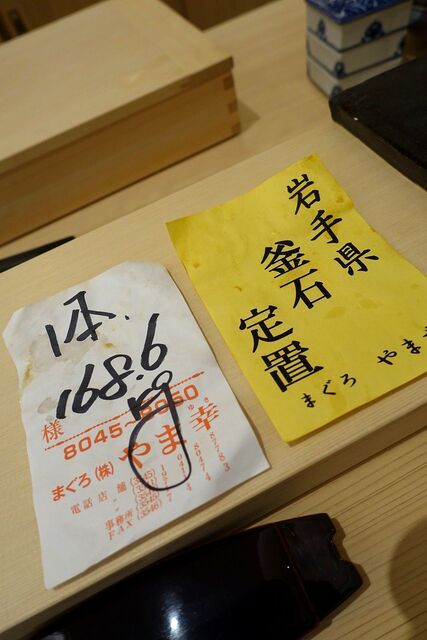 1本.
168.6
様
8045~8050
まぐろ(株)やま幸
ゆき
電話店舗
事務所
FAX
岩手県
釜石
定置
まぐろ やま